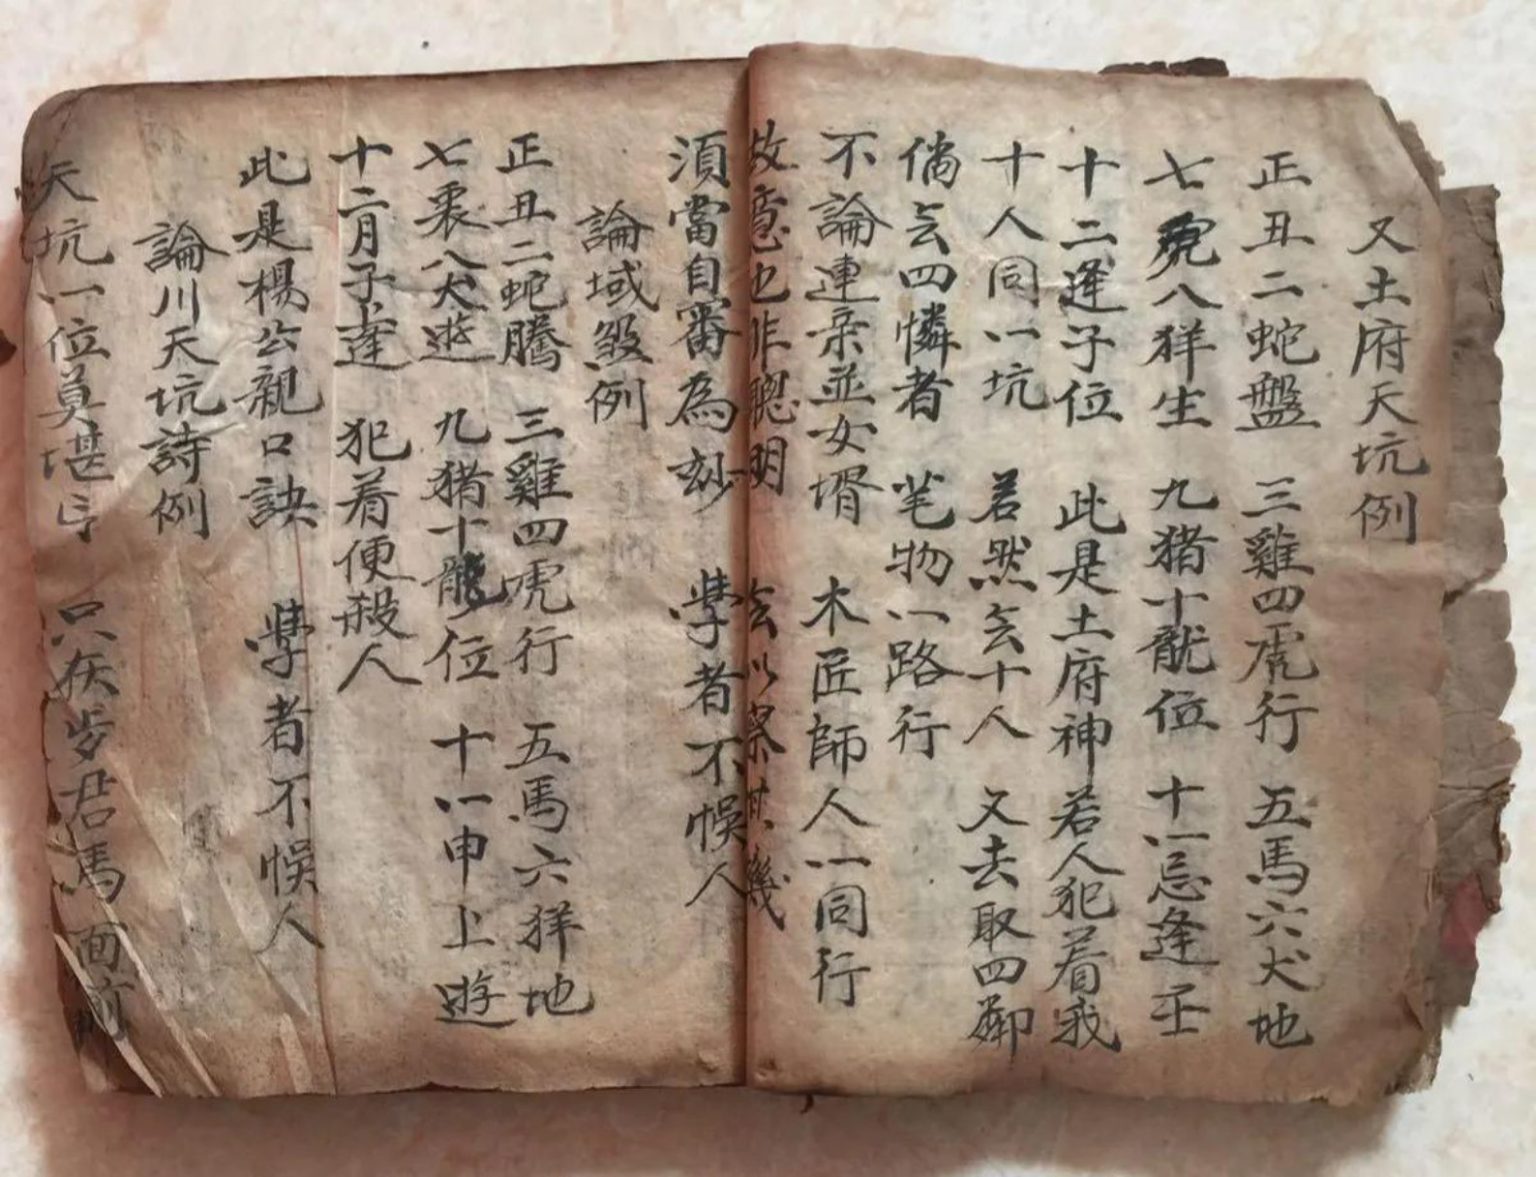 又土府天坑例
正丑二蛇盤 三雞四虎行 五馬六犬地
七兎八羊生 九猪十龍位 十一忌逢壬
十二逢子位 此是土府神 若人犯着我
十人同一坑 若然去十人 又去取四鄰
倘去四憐者 笔物一路行
不論連亲並女壻 木匠師人一同行
故意也非聰明 幾
須當自審為玅 學者不悞人
論域煞例
正丑二蛇騰 三雞四虎行 五馬六羊地
七 八犬遊 九猪十龍位 十一申上遊
十二月子逢 犯着便殺人
此是楊公親口訣 學者不悞人
論川天坑詩例
天坑一位莫堪 只在步君馬面前